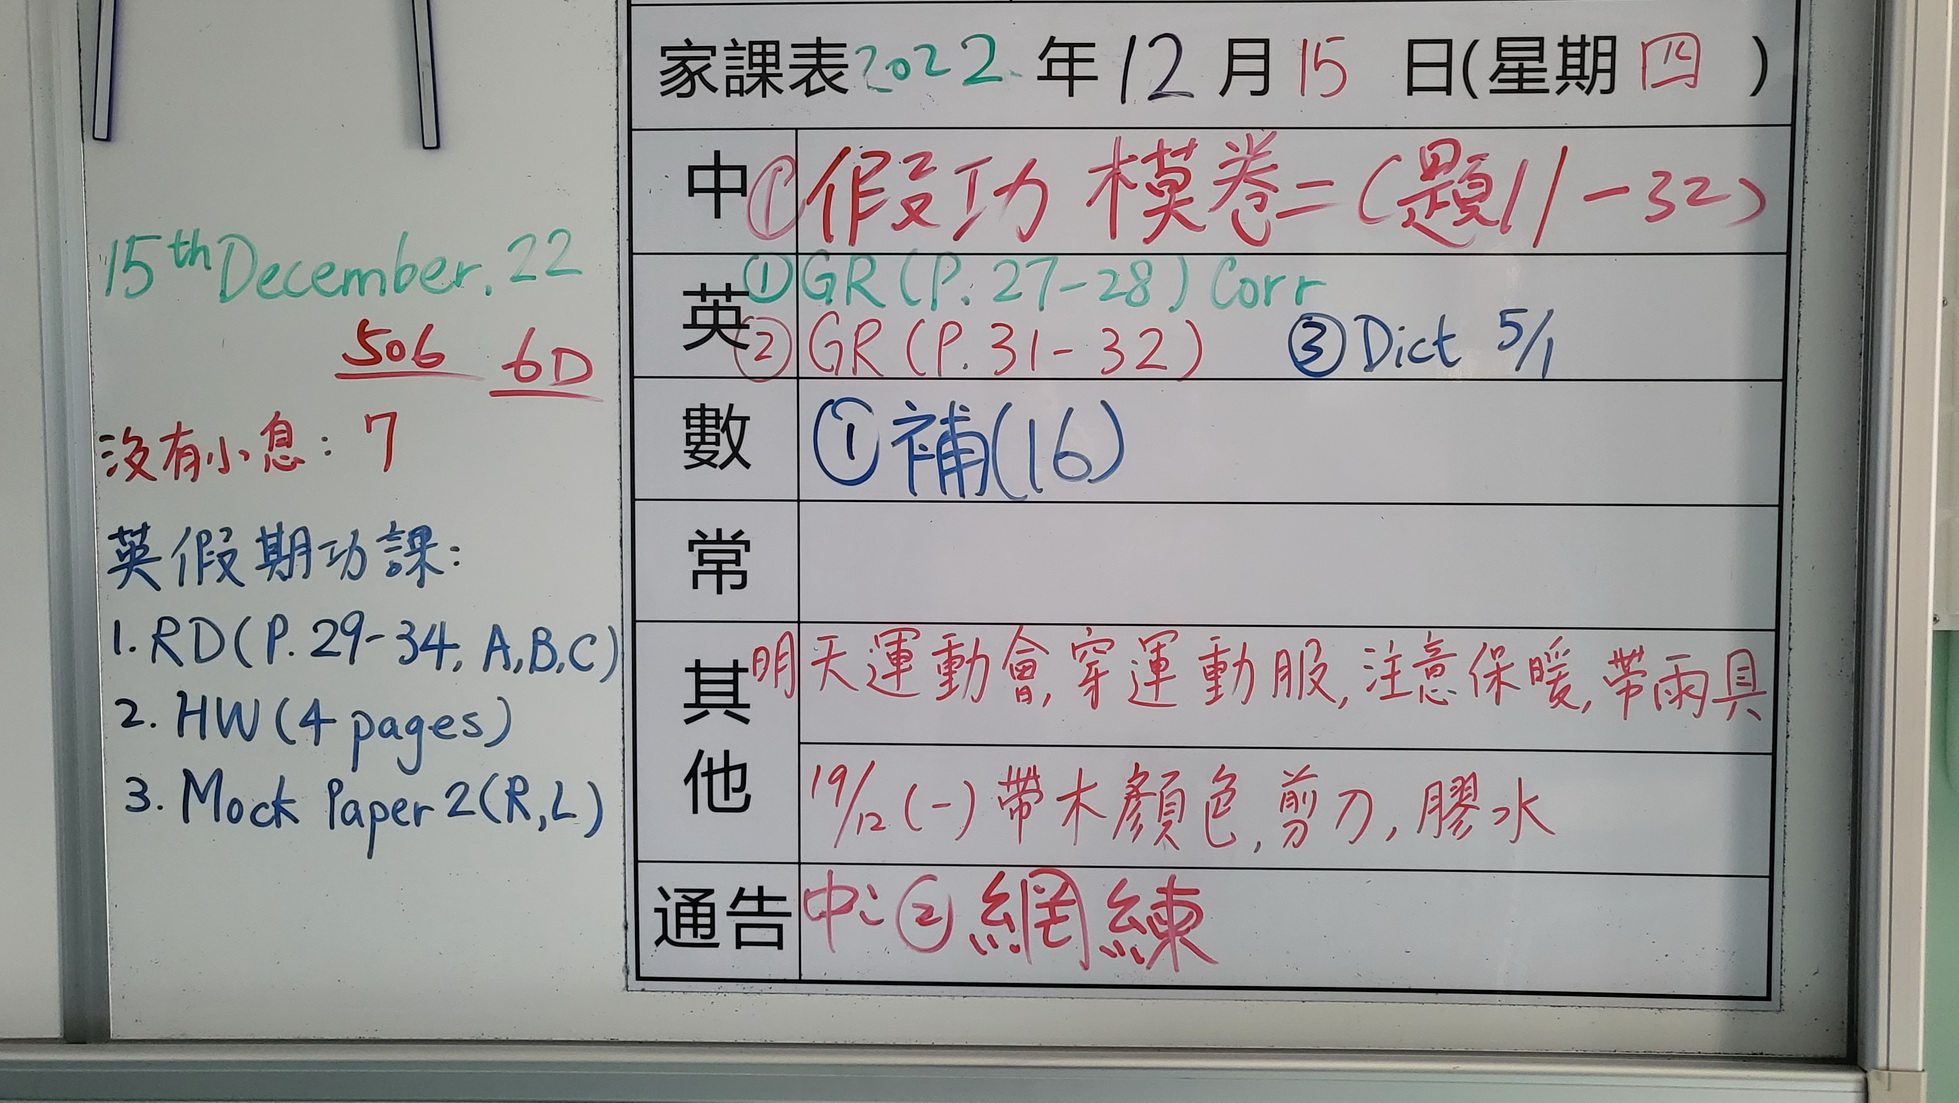 15th December. 22
506 6D
沒有小息: 7
英假期功課:
1. RD (P. 29-34, A,B,C)
2. HW (4 pages)
3. Mock Paper 2 (R,L)
家課表 2022 年 12 月 15 日(星期四)
中 ① 假功 模卷二 (題11-32)
英 ① GR (P. 27-28) Corr
② GR (P. 31-32) ③ Dict 5/1
數 ① 補(16)
常
其他 明天運動會, 穿運動服, 注意保暖, 帶雨具
19/12 (一) 帶木顏色, 剪刀, 膠水
通告 中: ② 網練